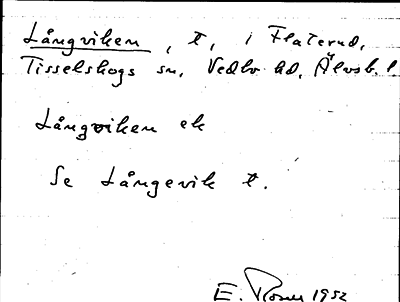 Långviken, t, i Flaterud,
Tisselskogs sn, Vedbo hd, Älvsb. l.
Långviken ek
Se Långevik t.
E. 1952